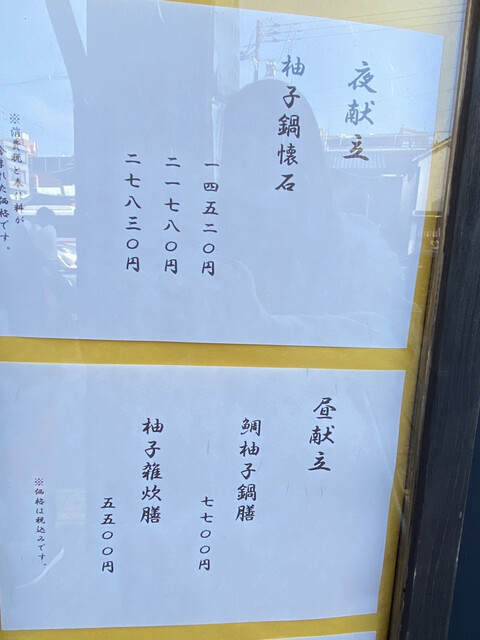 夜献立
柚子鍋懐石
一四五二〇円
二一七八〇円
二七八三〇円
※消費税と奉仕料が
含まれた価格です。
昼献立
鯛柚子鍋膳
七七〇〇円
柚子雑炊膳
五五〇〇円
※価格は税込みです。